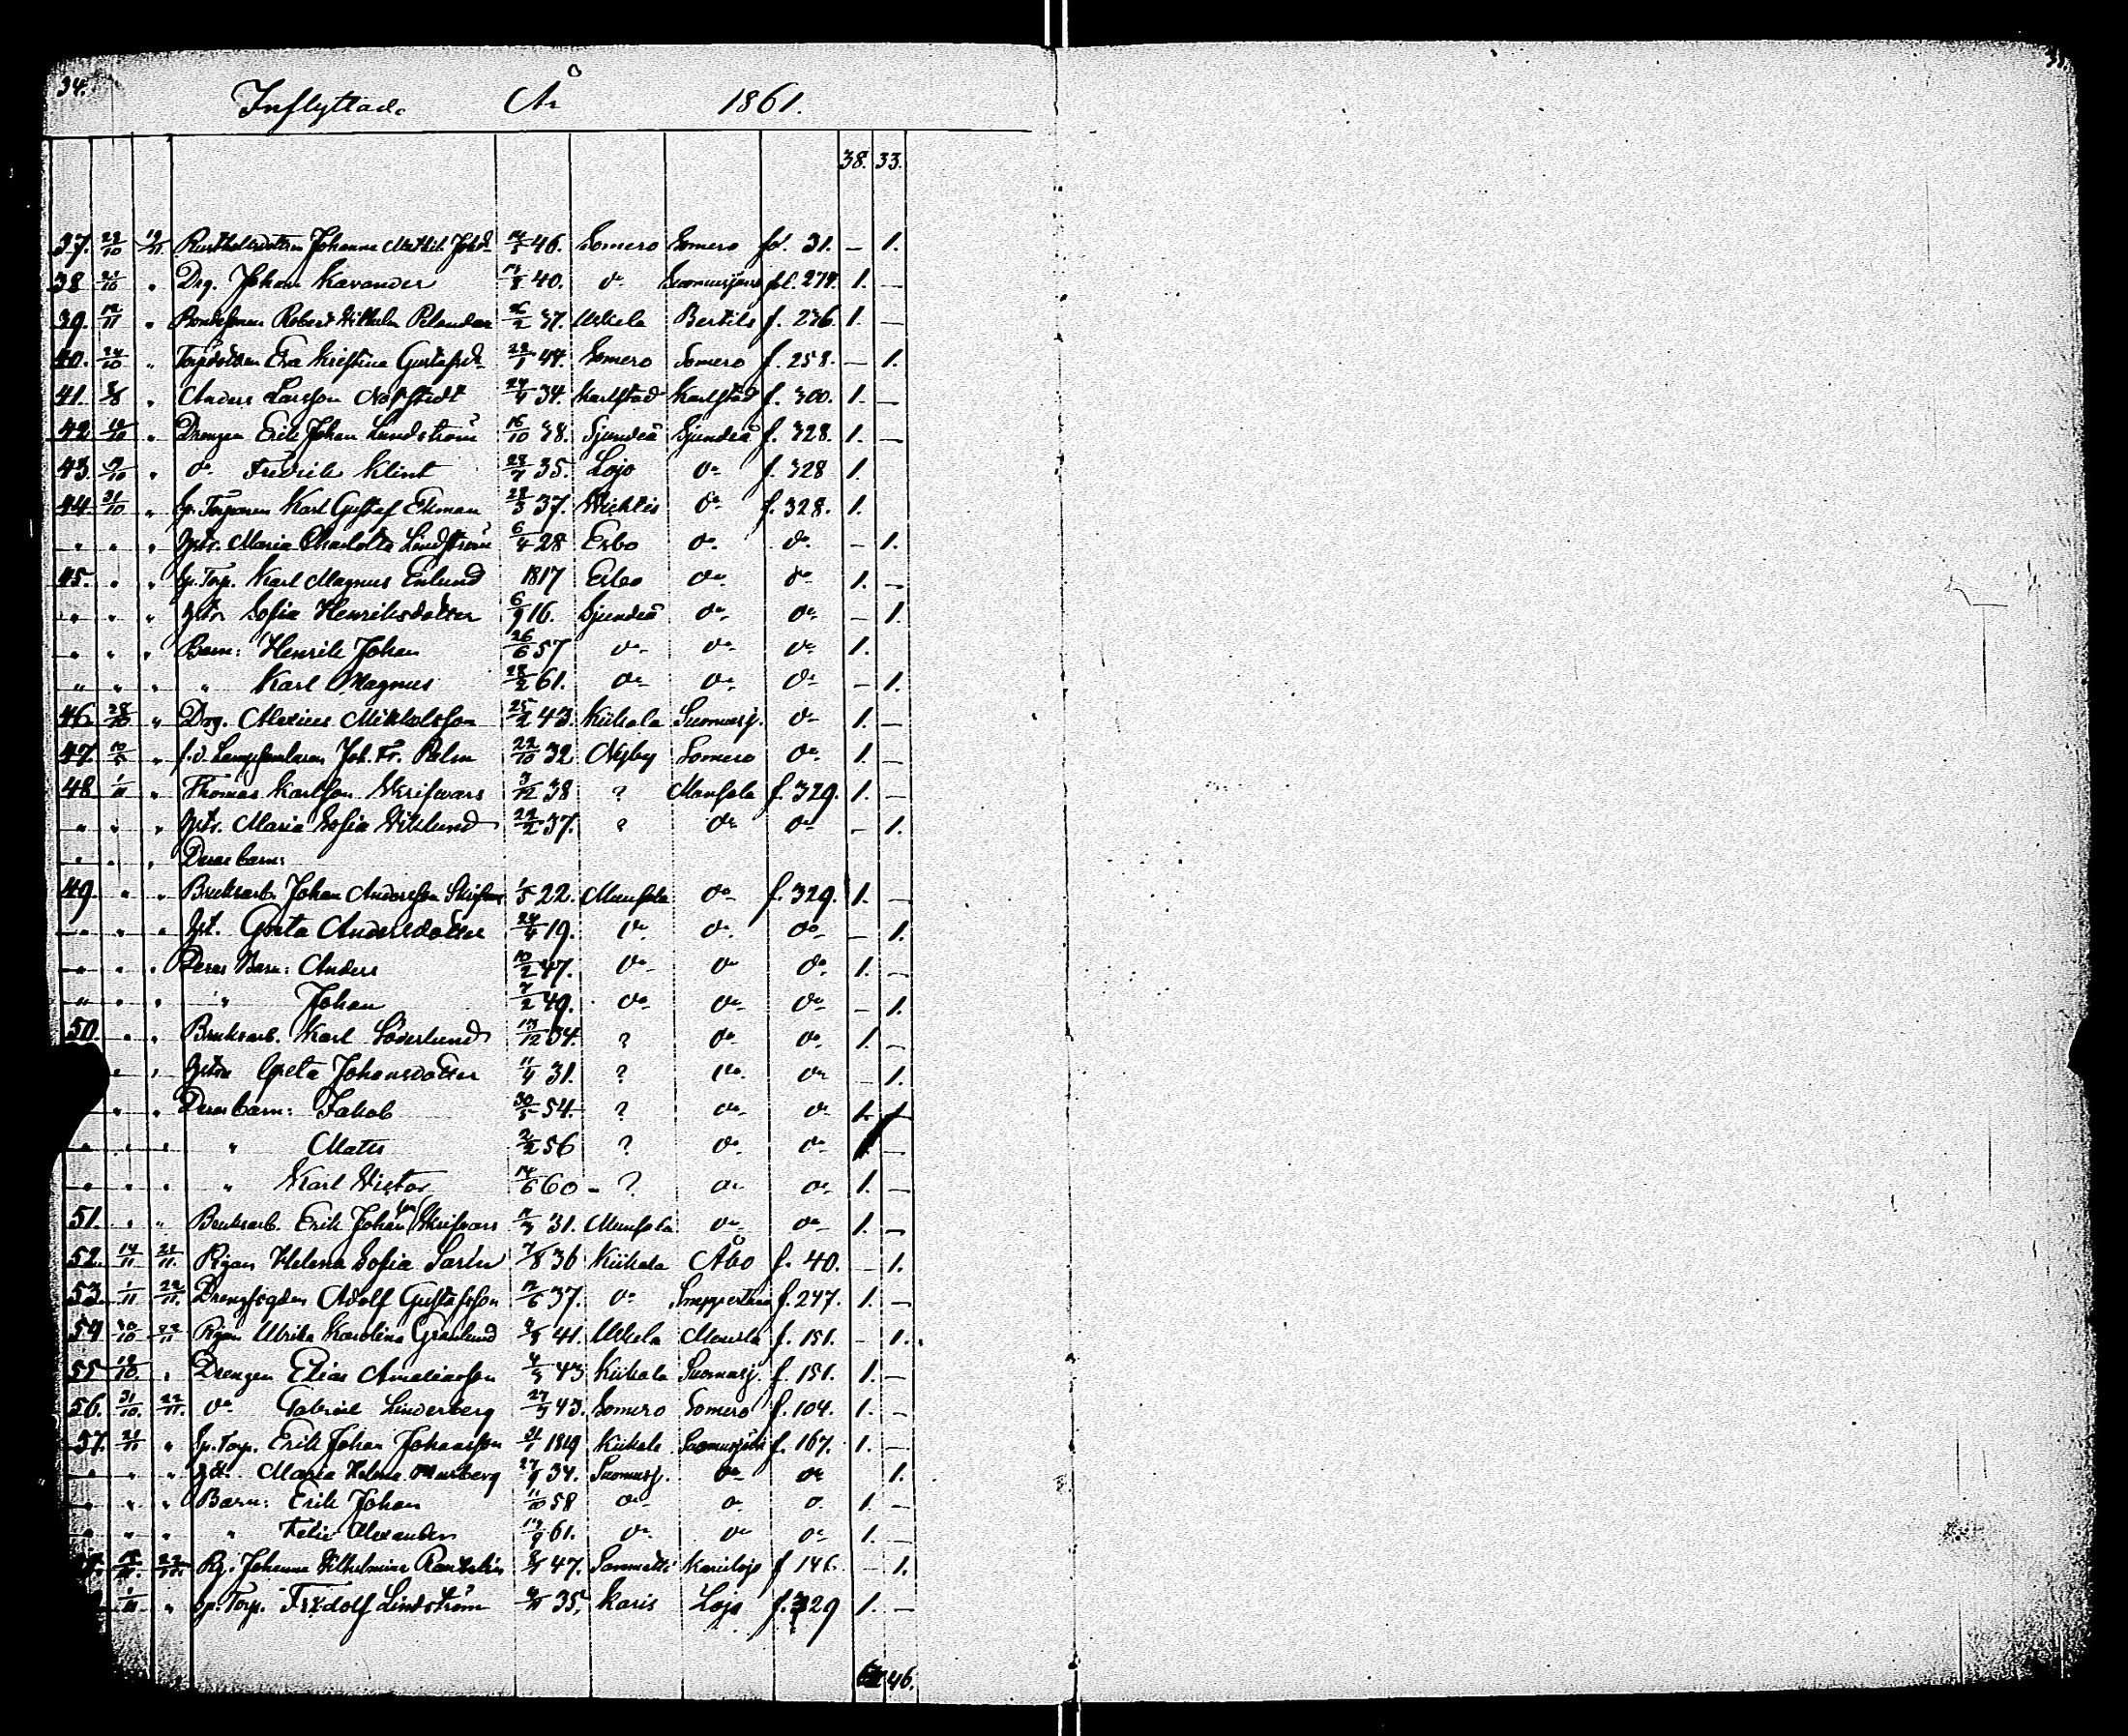 34.
Inflyttade År 1861.
38. 33.
37. 23/10 19/11 Johanna Mathil. Joh.d. 46. Somero Somero fol. 31. — 1.
38 21/10 " Drg. Johan Kavander 40. do Suomusjärvi fol. 274. 1. —
39. 12/11 " Bondesonen Robert Wilhelm Pelander 26/2 37. Uskela Bertils f. 236. 1. —
40. 24/10 " Eva Kristina Gustafsd. 22/1 44. Somero Somero f. 258. — 1.
41. " Anders Larsson 24/4 34. Karlstad Karlstad f. 300. 1. —
42 " Drengen Erik Johan Lundström 16/10 38. Sjundeå Sjundeå f. 328. 1. —
43. " do Fredrik Klint 28/7 35. Lojo do f. 328 1.
44. 31/10 " Sp. Torparen Karl Gustaf Ekman 28/3 37. Wichtis do f. 328. 1.
" " " Hstr. Maria Charlotta Lindström 6/4 28 Esbo do do — 1.
45. " " Sp. Torp. Karl Magnus Enlund 1817 Esbo do do 1. —
" " " Hstr Sofia Henriksdotter 6/9 16. Sjundeå do do — 1.
" " " Barn: Henrik Johan 26/6 57 do do do 1.
" " " " Karl Magnus 28/2 61. do do do — 1.
46. 28/10 " Drg. Alexius Mikkelsson 25/2 43. Kiikala Suomusj. do 1. —
47. 10/5 " f.d. Joh. Fr. Palm 22/10 32 Nyby Somero do 1. —
48. 1/11 " Thomas Karlsson Skrifwars 3/12 38 ? Munsala f. 329. 1. —
" " " Hstr. Maria Sofia Wiklund 22/2 37. ? do do — 1.
" " " Deras barn:
49. " " Bruksarb. Johan Andersson 1/5 22. Munsala do f. 329. 1. —
" " " Hst. Greta Andersdotter 24/4 19. do do do — 1.
" " " Deras Barn: Anders 10/2 47. do do do 1. —
" " " " Johan 7/2 49. do do do — 1.
50. " " Bruksarb. Karl Söderlund 13/12 34. ? do do 1. —
" " Hstru Greta Johansdotter 11/4 31. ? do do — 1.
" " Deras barn: Jakob 30/5 54. ? do do 1. 1.
" " " " Matts 2/2 56 ? do do 1. —
" " " " Karl Victor 14/6 60 - ? do do 1. —
51. " " Bruksarb. Erik Johansson Skrifvars 31. Munsala do do 1. —
52. 14/11 21/11. Pigan Helena Sofia Sarin 7/8 36 Kiikala Åbo f. 40. — 1.
53. 1/11 22/11. Adolf Gustafsson 12/6 37. do f. 247. 1. —
54 30/10 22/11 Pigan Ulrika Karolina Granlund 41. Uskela f. 151. — 1.
55 " Drengen Elias 4/3 43 Kiikala Suomusj. f. 151. 1. —
56. 31/10. 22/11. do Gabriel Linderberg 27/3 43. Somero Somero f. 104. 1. —
57. 21/11 " Sp. Torp. Erik Johan Johansson 21/1 1819 Kiikala Suomusjärvi f. 167. 1. —
" " " Hst. Maria Helena Murberg 27/9 34. Suomusj. do do 1.
" " " Barn: Erik Johan 11/10 58 do do do 1. —
" " " " Felix Alexander 13/9 61. do do do 1. —
22/11. Pg. Johanna Wilhelmina 47. Sammatti Karislojo f 146. — 1.
1/11 " Sp. Torp. Fridolf Lindström 35. Karis Lojo f. 329 1. —
46.